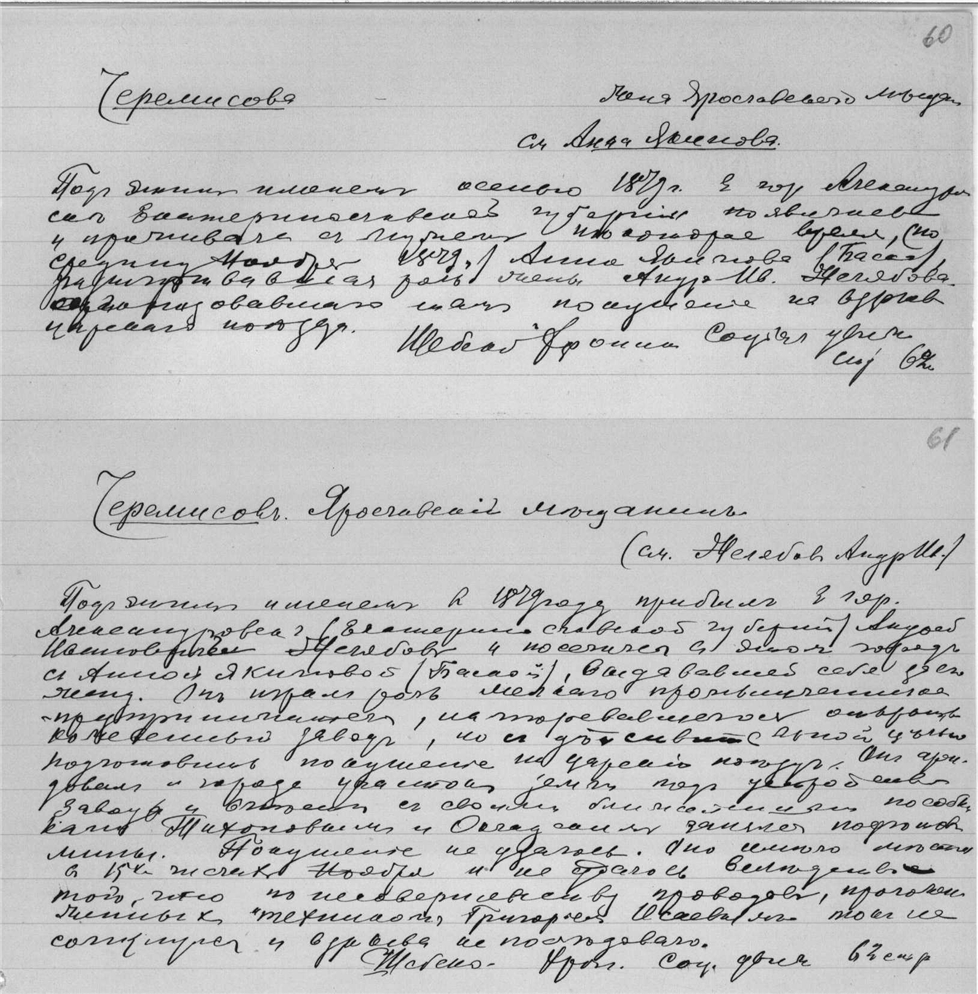 60
Черемисова жена Ярославского мещан
см Анна Якимова.
Подъ этимъ именемъ осенью 1879 г. въ гор Александров
скъ Екатеринославской губернiи появилась
и проживала съ мужемъ некоторое время, (по
средину Ноября 1879 г.) Анна Якимова (Баска),
разыгрывавшая роль жены Андр Ив. Желябова,
организовавшаго тамъ покушенiе на взрывъ
царскаго поезда.
Щебеко Хроника Соцiал движ
стр 62
61
Черемисовъ. Ярославскiй мещанинъ
(см. Желябовъ Андр Ив.)
Подъ этимъ именемъ въ 1879 году прибылъ въ гор.
Александровскъ (Екатеринославской губернiи) Андрей
Ивановичъ Желябовъ и поселился въ этомъ городе
съ Анной Якимовой (Баской), выдававшей себя за его
жену. Онъ игралъ роль мелкаго промышленника
предпринимателя, намеревавшагося открыть
кожевенный заводъ, но съ действительной целью
подготовить покушенiе на царскiй поездъ. Онъ арен-
довалъ въ городе участокъ земли подъ устройство
завода и вместе съ своими ближайшими пособни
ками Тихоновымъ и Окладскимъ занялся подготов
мины. Покушенiе не удалось. Оно имело место
въ 15хъ числахъ Ноября и не удалось вследствiе
того, что по несовершенству проводовъ, проложен
ныхъ "техникомъ" Григорiемъ Исаевымъ токъ не
сомкнулся и взрыва не последовало.
Щебеко. Хрон. Соц. движ 62 стр